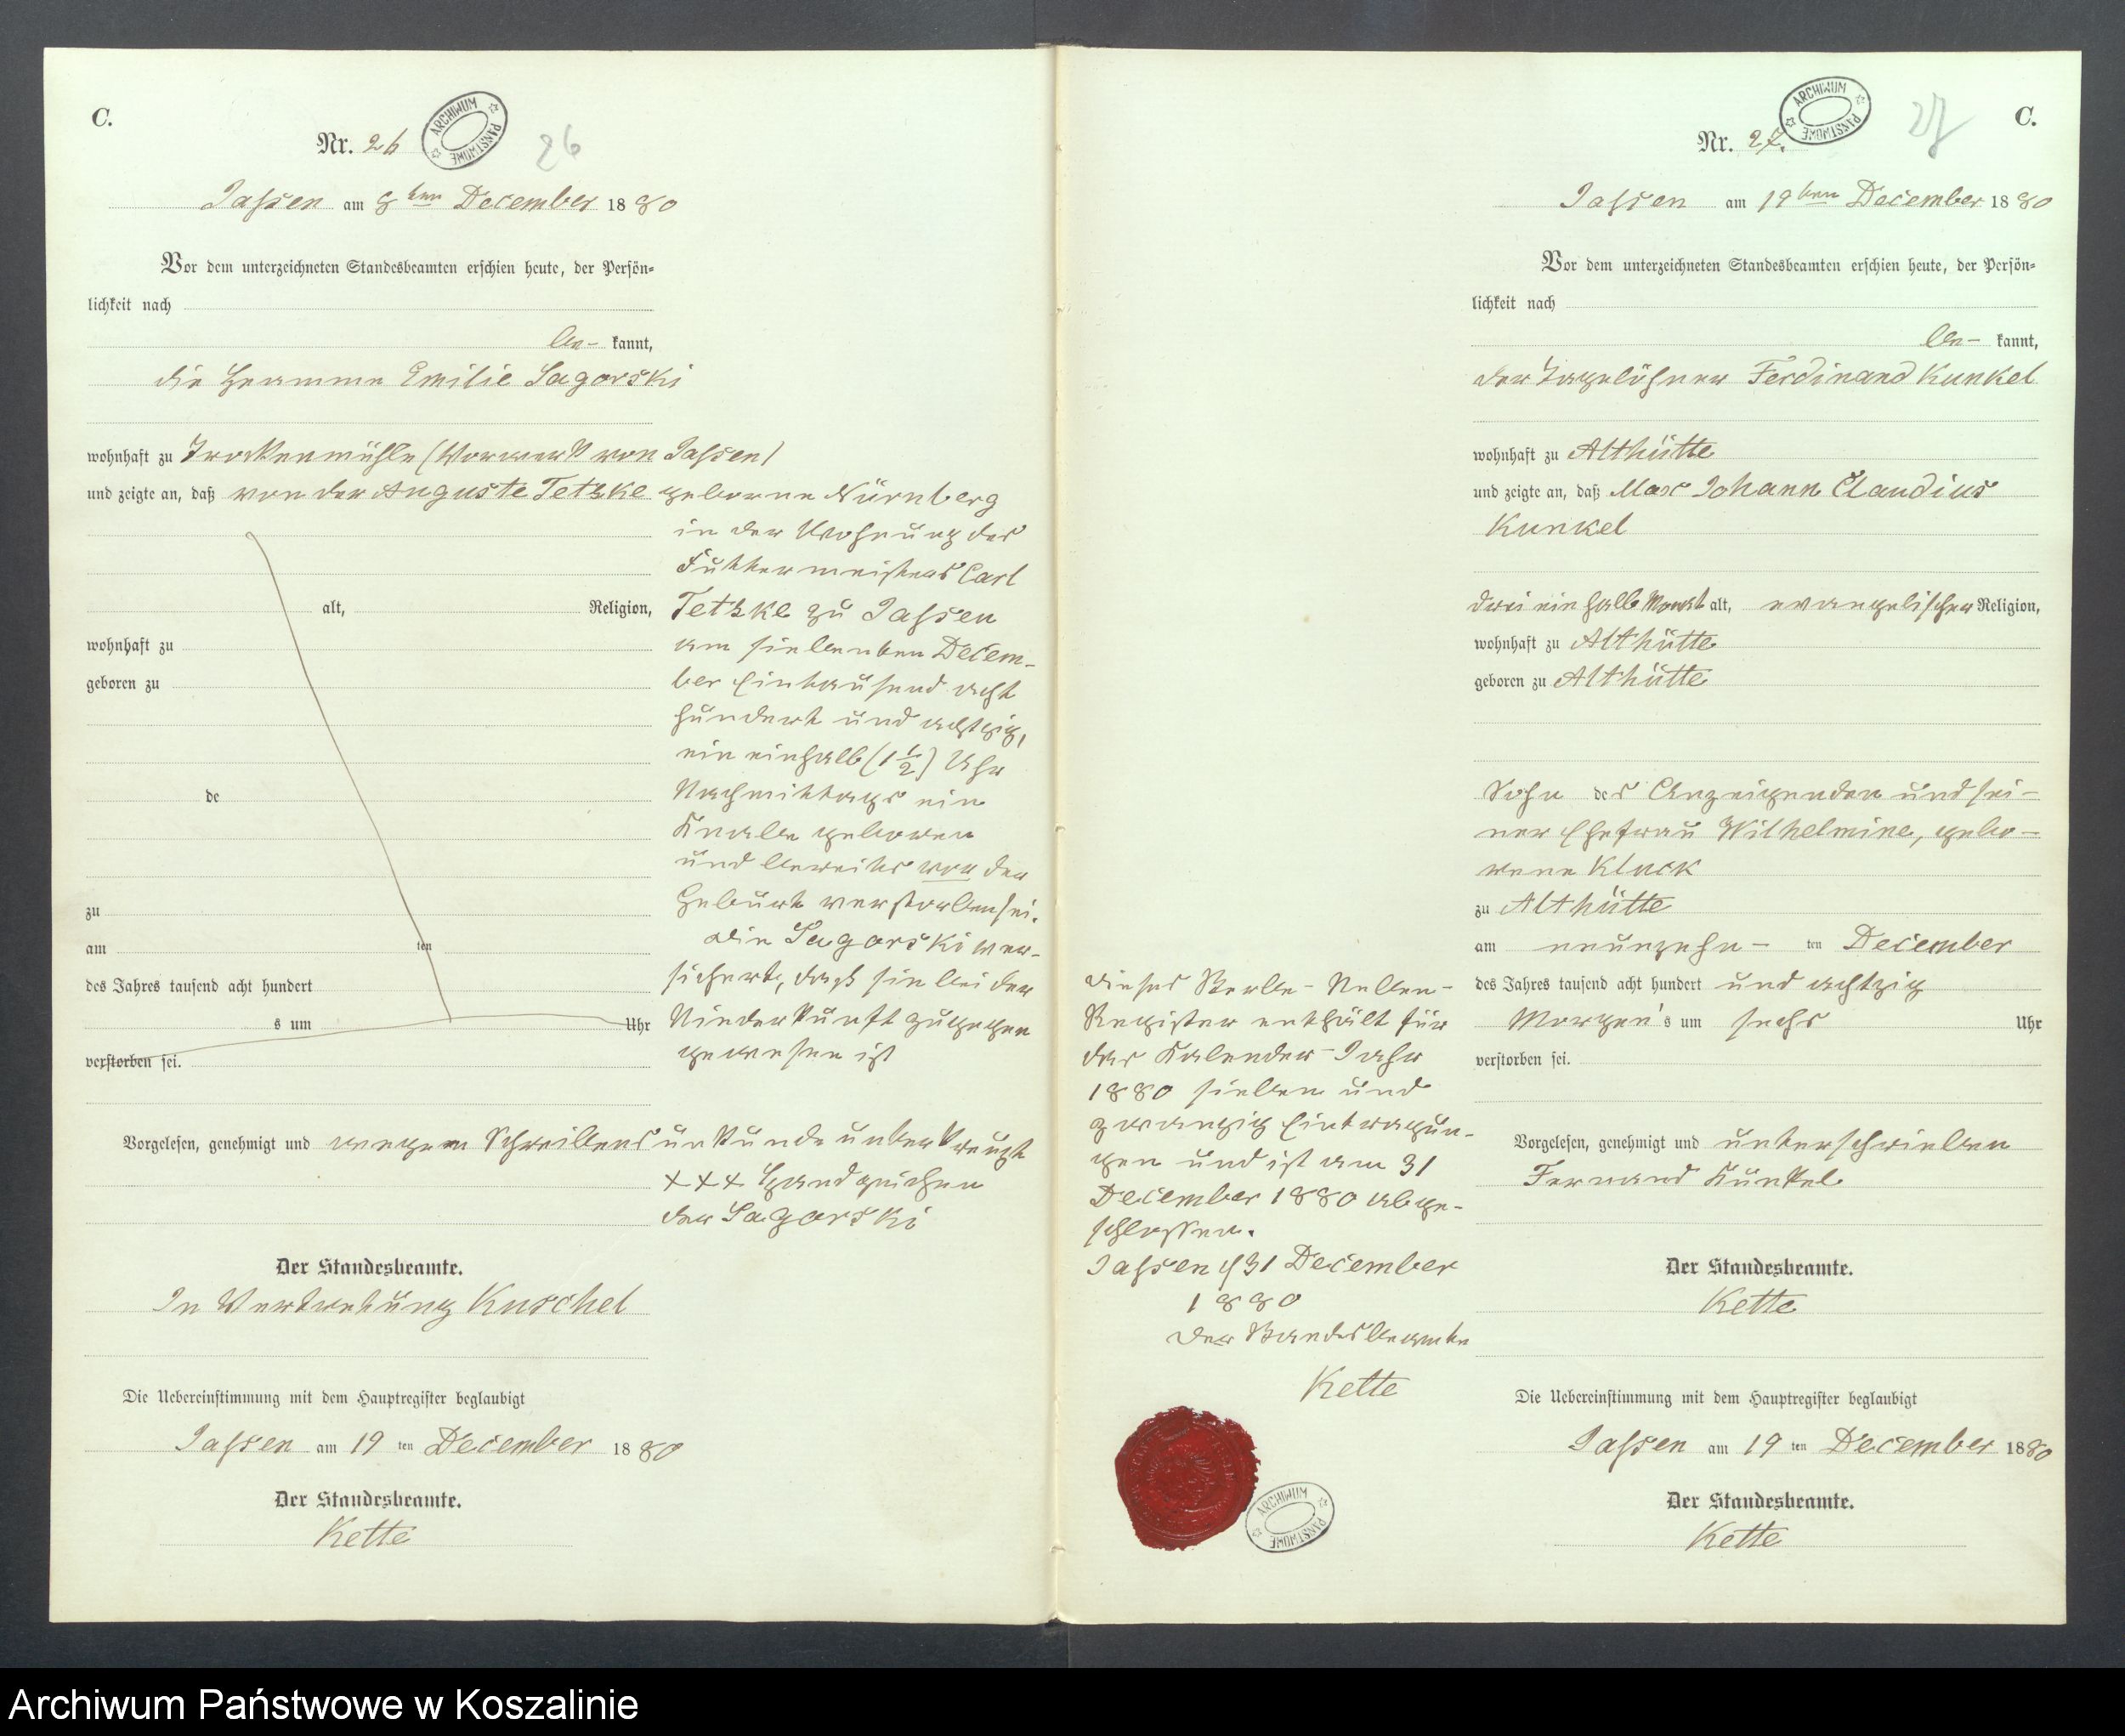 C.
Nr. 26
ARCHIWUM PAŃSTWOWE
26
Jassen am 8ten December 1880
Vor dem unterzeichneten Standesbeamten erschien heute, der Persön-
lichkeit nach
be- kannt,
die Heamme Emilie Sagorski
wohnhaft zu Trockenmühle (Vorwerk von Jassen)
und zeigte an, daß von der Auguste Tetzke geborne Nürnberg
in der Wohnung des
Futtermeisters Carl
alt, Religion, Tetzke zu Jassen
wohnhaft zu am siebenten Decem-
geboren zu ber Eintausend acht
hundert und achtzig,
ein einhalb (1 1/2) Uhr
de Nachmittags ein
Knabe geboren
und bereits vor der
zu Geburt verstorben sei.
am ten Die Sagorski ver-
des Jahres tausend acht hundert sichert, daß sie bei der
s um Uhr Niederkunft zugegen
verstorben sei. gewesen ist
Vorgelesen, genehmigt und wegen Schreibensunkunde unterkreuzt
+++ Handzeichen
der Sagorski
Der Standesbeamte.
In Vertretung Kuschel
Die Uebereinstimmung mit dem Hauptregister beglaubigt
Jassen am 19 ten December 1880
Der Standesbeamte.
Kette
Dieses Sterbe-Neben-
Register enthält für
das Kalender-Jahr
1880 sieben und
zwanzig Eintragun-
gen und ist am 31
December 1880 abge-
schlossen.
Jassen d 31 December
1880
Der Standesbeamte
Kette
ARCHIWUM PAŃSTWOWE
C.
Nr. 27.
ARCHIWUM PAŃSTWOWE
27
Jassen am 19ten December 1880
Vor dem unterzeichneten Standesbeamten erschien heute, der Persön-
lichkeit nach
be- kannt,
der Tagelöhner Ferdinand Kunkel
wohnhaft zu Althütte
und zeigte an, daß Max Johann Claudius
Kunkel
drei ein halb Monat alt, evangelischer Religion,
wohnhaft zu Althütte
geboren zu Althütte
Sohn des Anzeigenden und sei-
ner Ehefrau Wilhelmine, gebo-
rene Kluck
zu Althütte
am neunzehn- ten December
des Jahres tausend acht hundert und achtzig
Morgen's um sechs Uhr
verstorben sei.
Vorgelesen, genehmigt und unterschrieben
Fernand Kunkel
Der Standesbeamte.
Kette
Die Uebereinstimmung mit dem Hauptregister beglaubigt
Jassen am 19 ten December 1880
Der Standesbeamte.
Kette
Archiwum Państwowe w Koszalinie